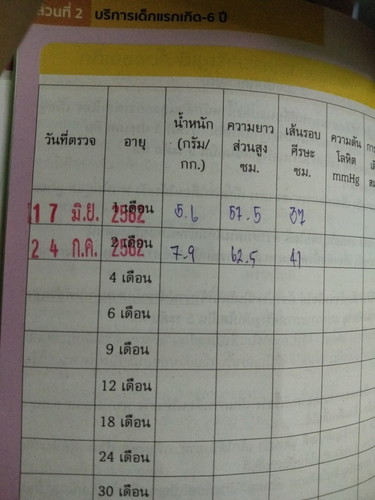 ส่วนที่ 2 บริการเด็กแรกเกิด-6 ปี
วันที่ตรวจ
อายุ
น้ำหนัก
(กรัม/
กก.)
ความยาว
ส่วนสูง
ซม.
เส้นรอบ
ศีรษะ
ซม.
ความดัน
โลหิต
mmHg
17 มิ.ย. 2562 1 เดือน 5.6 57.5 37
24 ก.ค. 2562 2 เดือน 7.9 62.5 41
4 เดือน
6 เดือน
9 เดือน
12 เดือน
18 เดือน
24 เดือน
30 เดือน